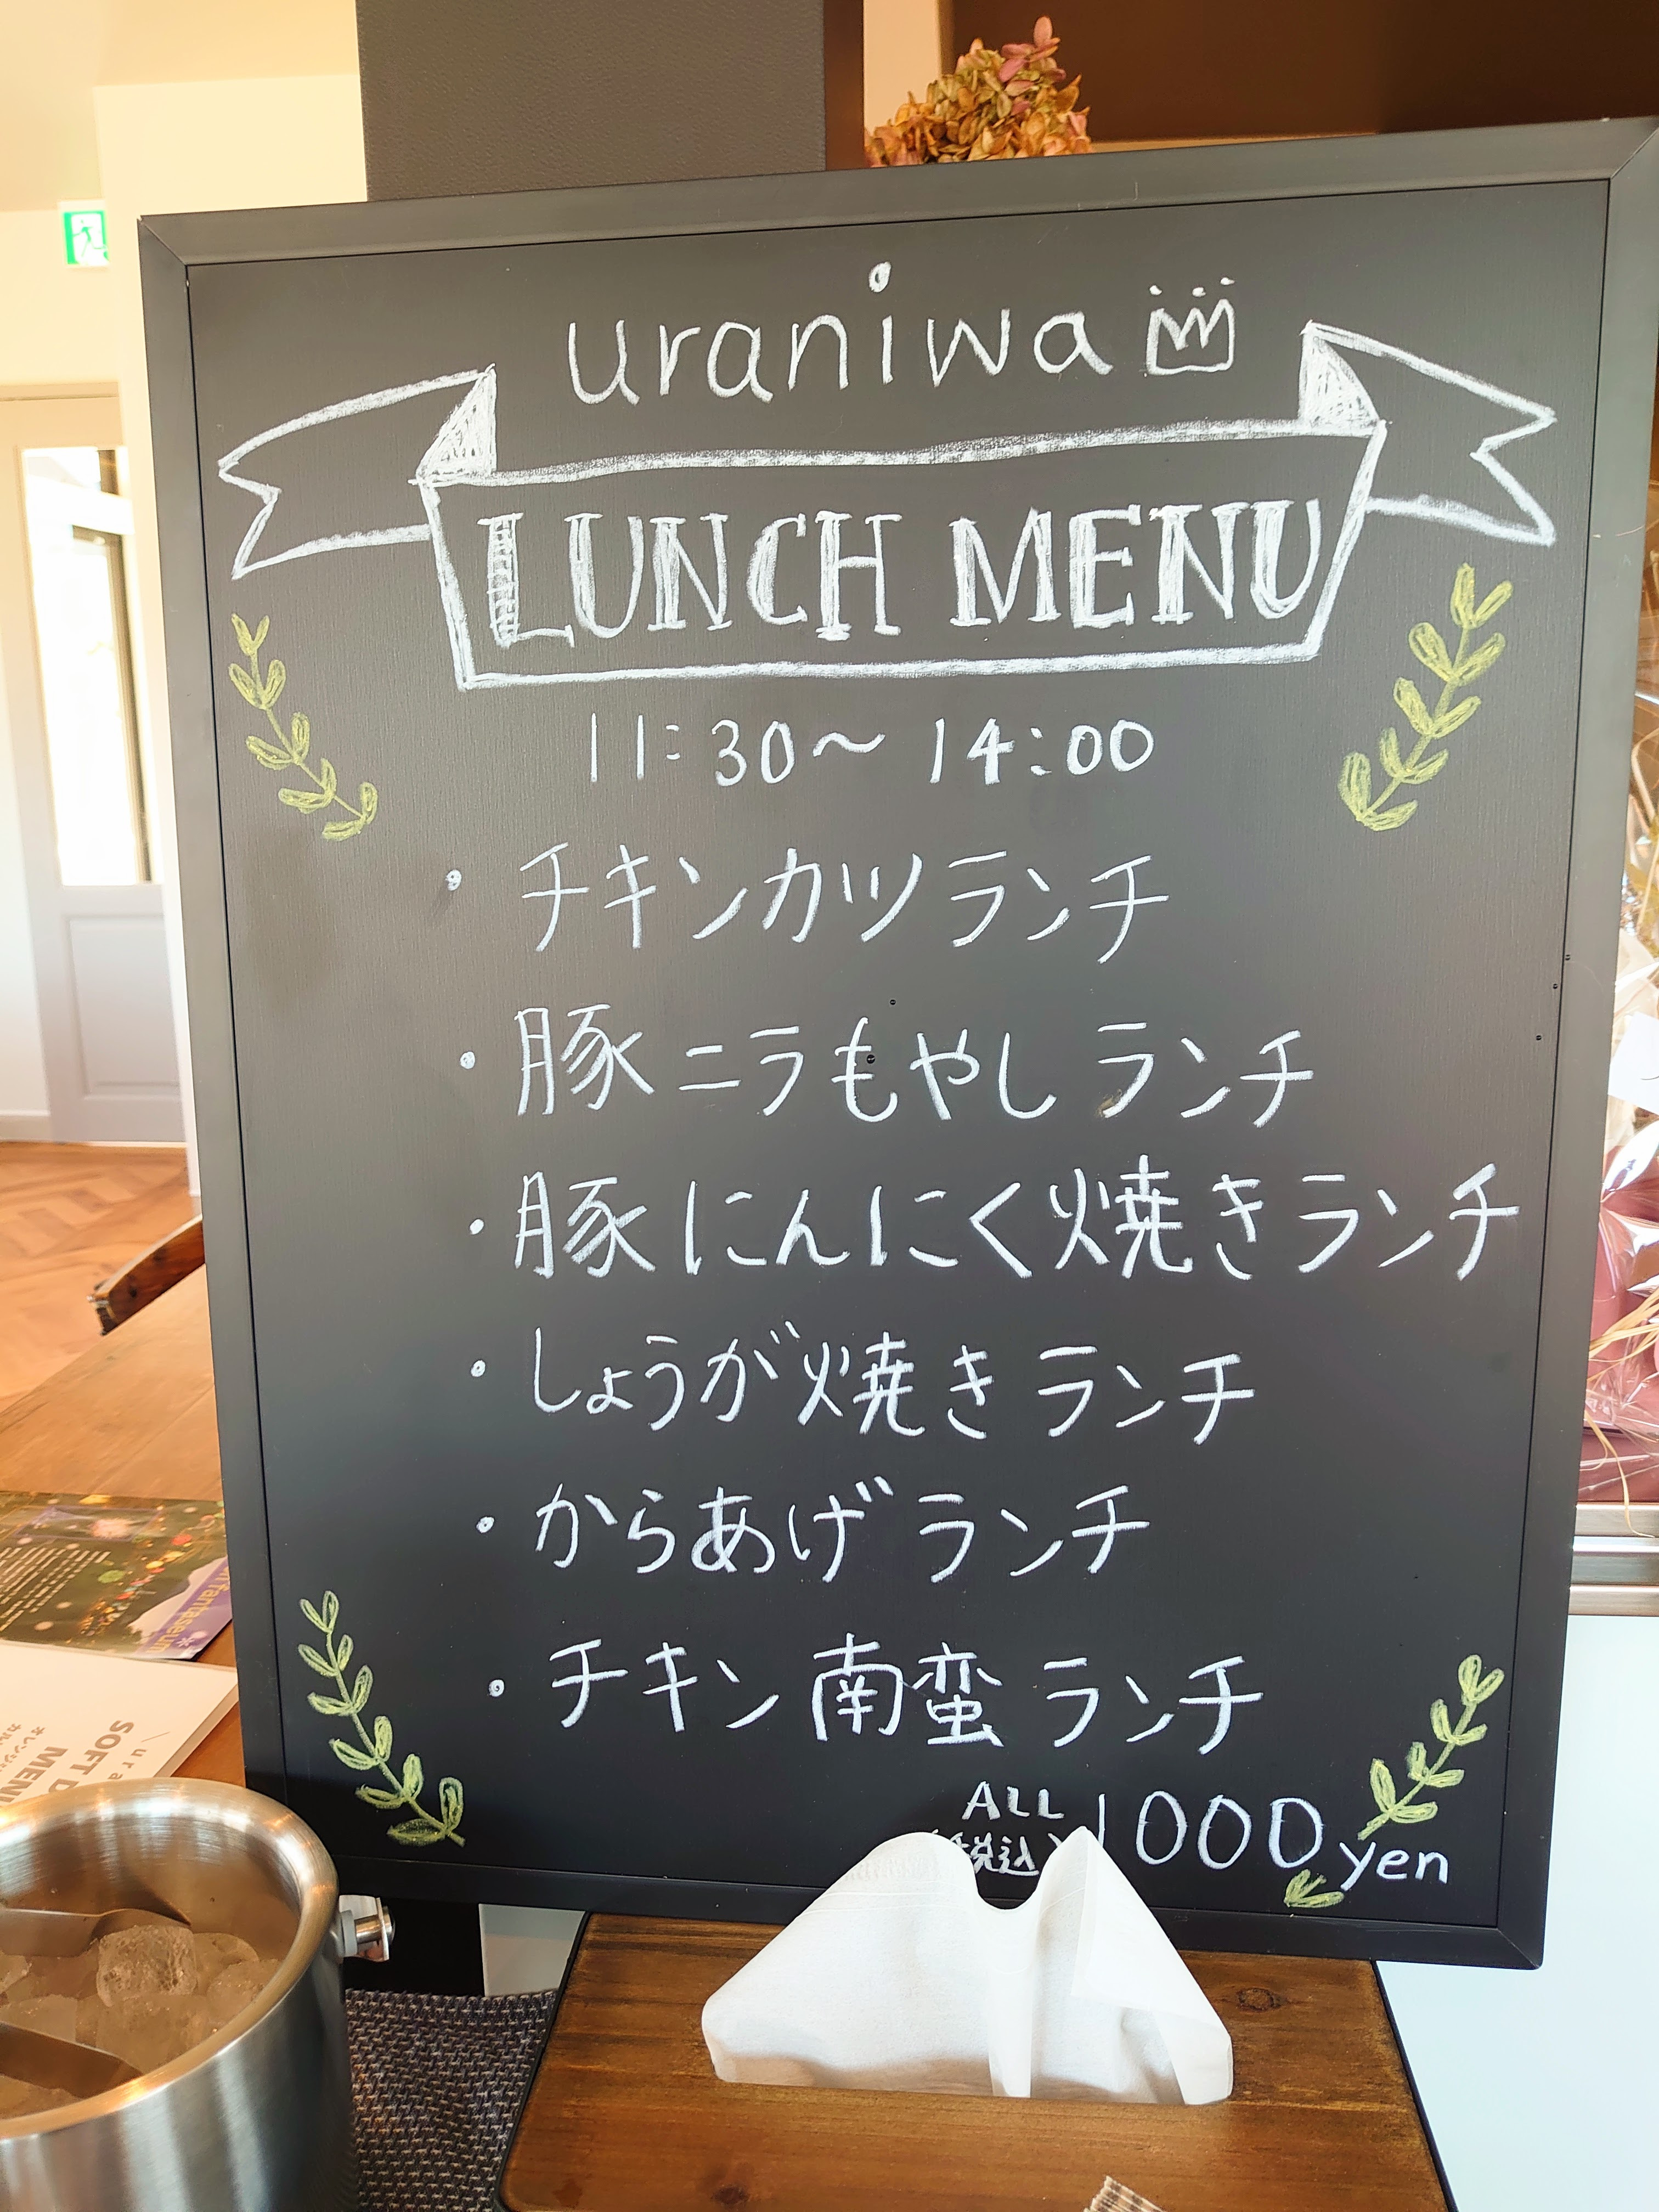 uraniwa
LUNCH MENU
11:30～14:00
・チキンカツランチ
・豚ニラもやしランチ
・豚にんにく焼きランチ
・しょうが焼きランチ
・からあげランチ
・チキン南蛮ランチ
ALL
(税込)
1000yen
fantaseum
ura
SOFT D
MEN